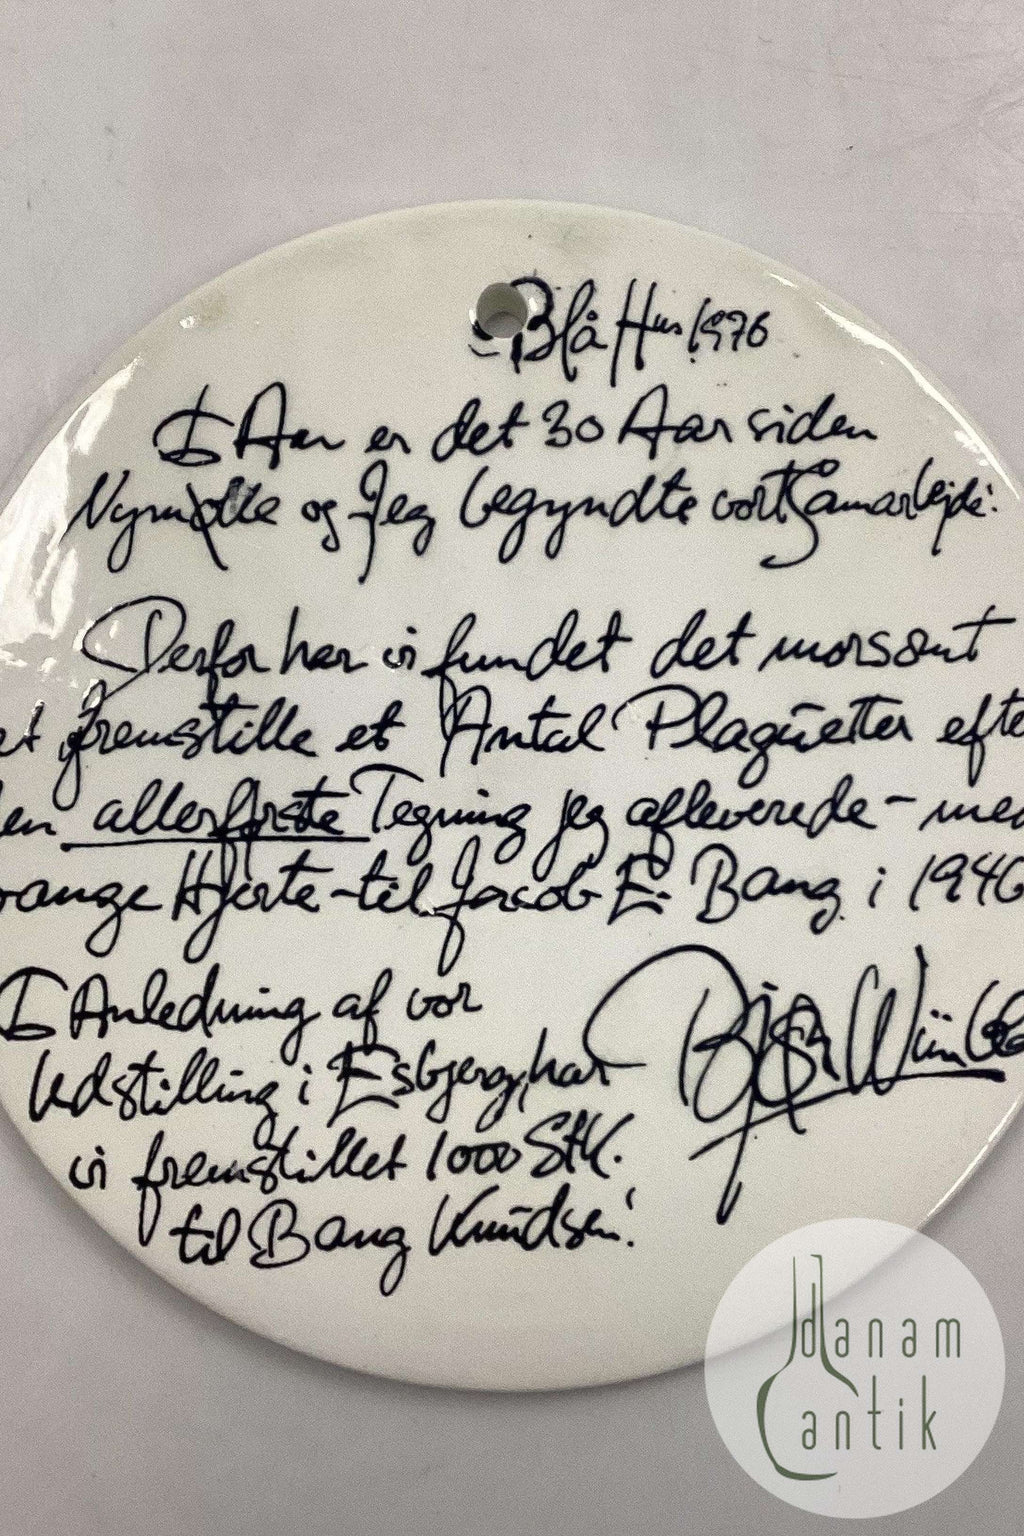 Blå Hus 1976
I Aar er det 30 Aar siden
Nymølle og Jeg begyndte vort Samarbejde.
Derfor har vi fundet det morsomt
at fremstille et Antal Plaquetter efte
den allerførste Tegning jeg afleverede - med
orange Hjorte - til Jacob E. Bang i 1946
I Anledning af vor
Udstilling i Esbjerg, har
vi fremstillet 1000 Stk.
til Bang Knudsen!
Bjørn Wiinbla
danam
antik